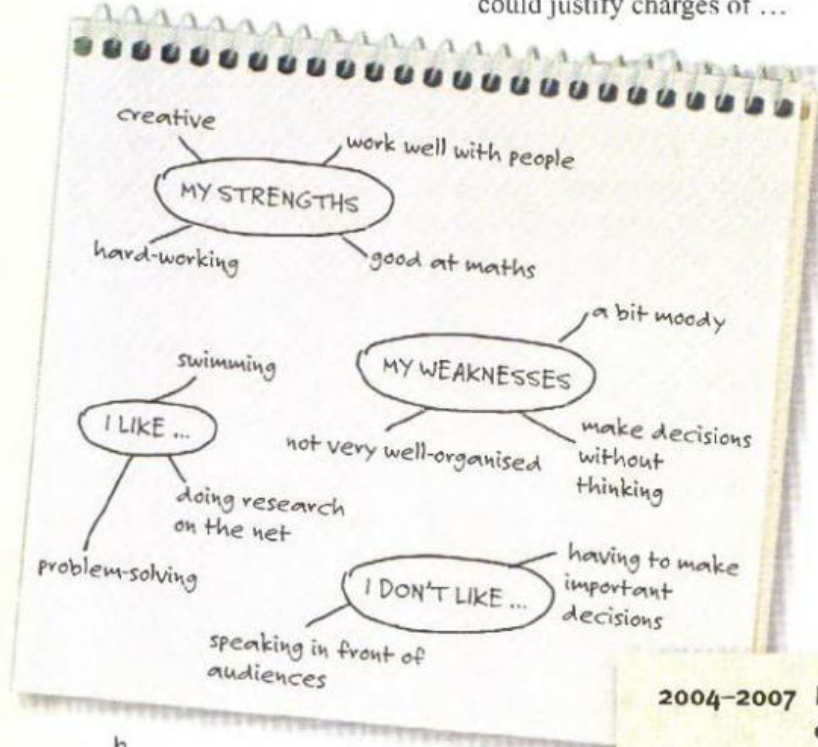 could justify charges of ...
creative
work well with people
MY STRENGTHS
hard-working
good at maths
a bit moody
MY WEAKNESSES
not very well-organised
make decisions
without
thinking
swimming
I LIKE ...
doing research
on the net
problem-solving
having to make
important
decisions
I DON'T LIKE ...
speaking in front of
audiences
2004–2007
b